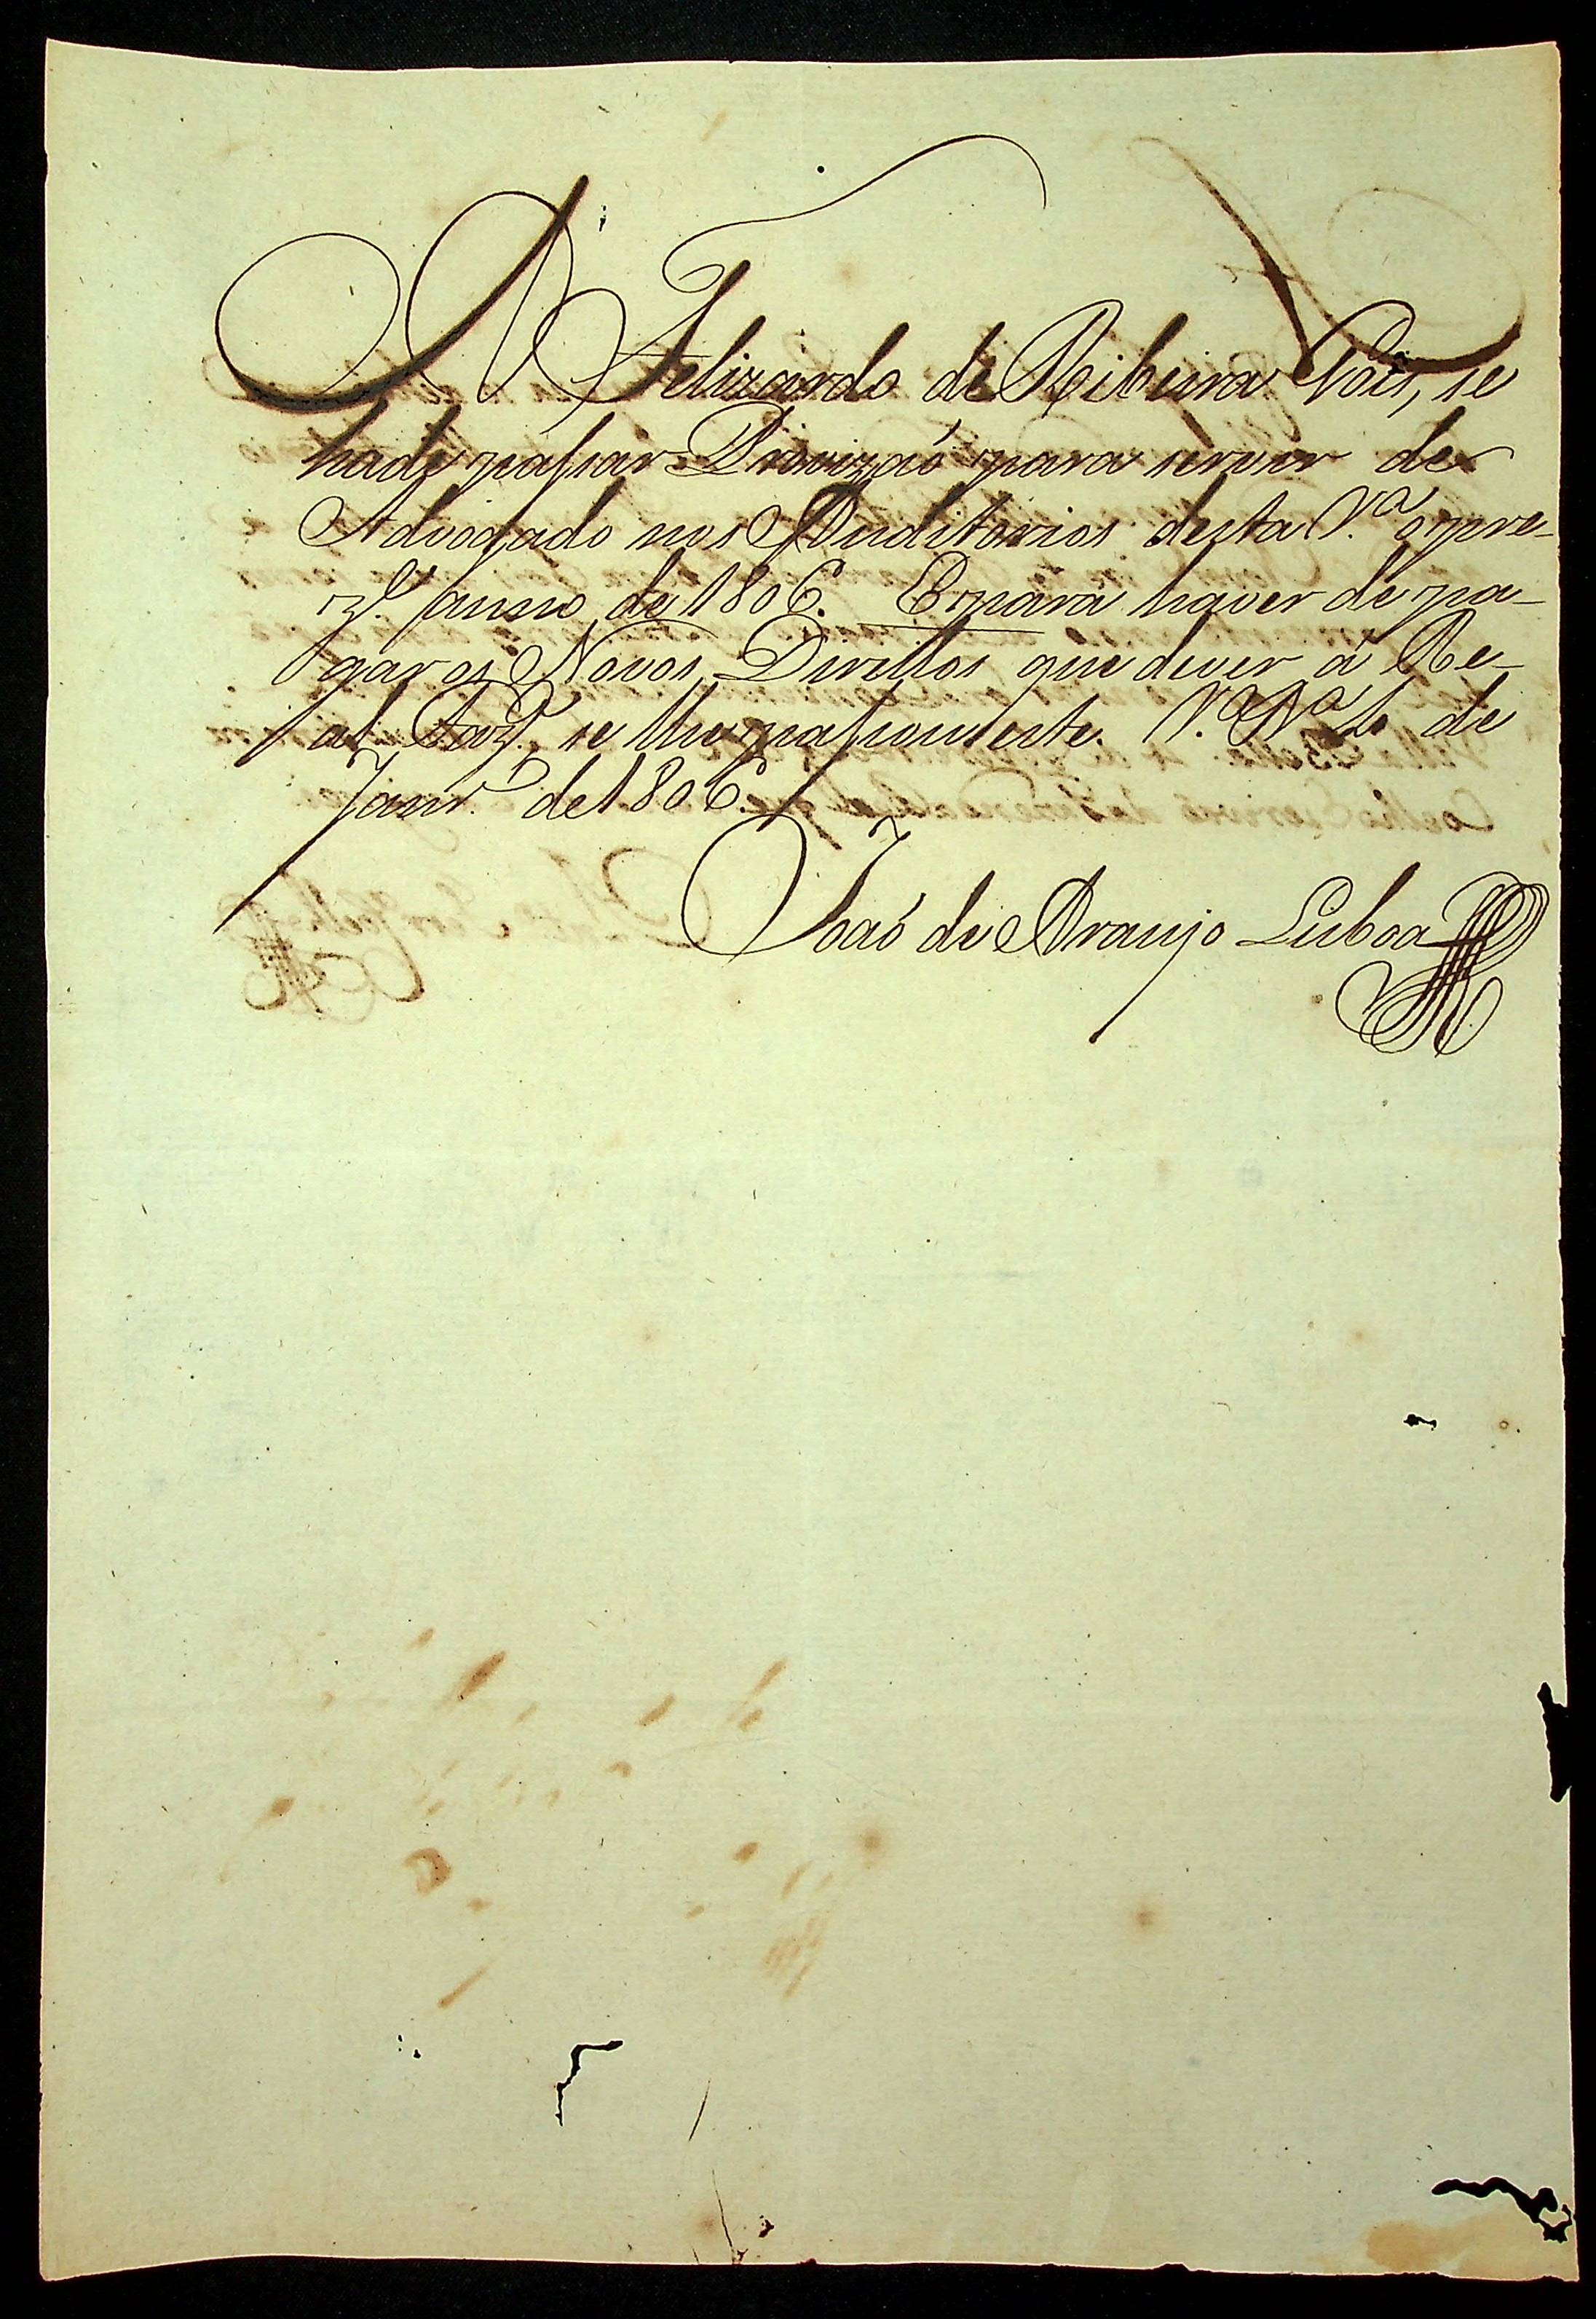 A Felizardo de Ribeira Pais, se
hade passar Provizaó para servir de
Advogado nos Auditorios desta V.ª o pre-
z.e anno de 1806. E para haver de pa-
gar os Novos Direitos que dever á Re-
al Faz.da se lhe passou este. V.ª B.ª 4 de
Janr.º de 1806.
Joaó de Araujo Lisboa